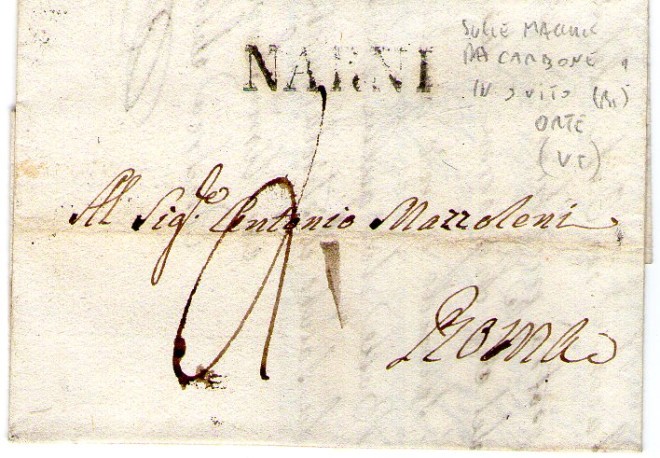 NARNI
SULLE MACCHIE
DA CARBONE
IN S VITO (Ri)
ORTE
(VT)
Al Sig.re Antonio Mazzoleni
Roma